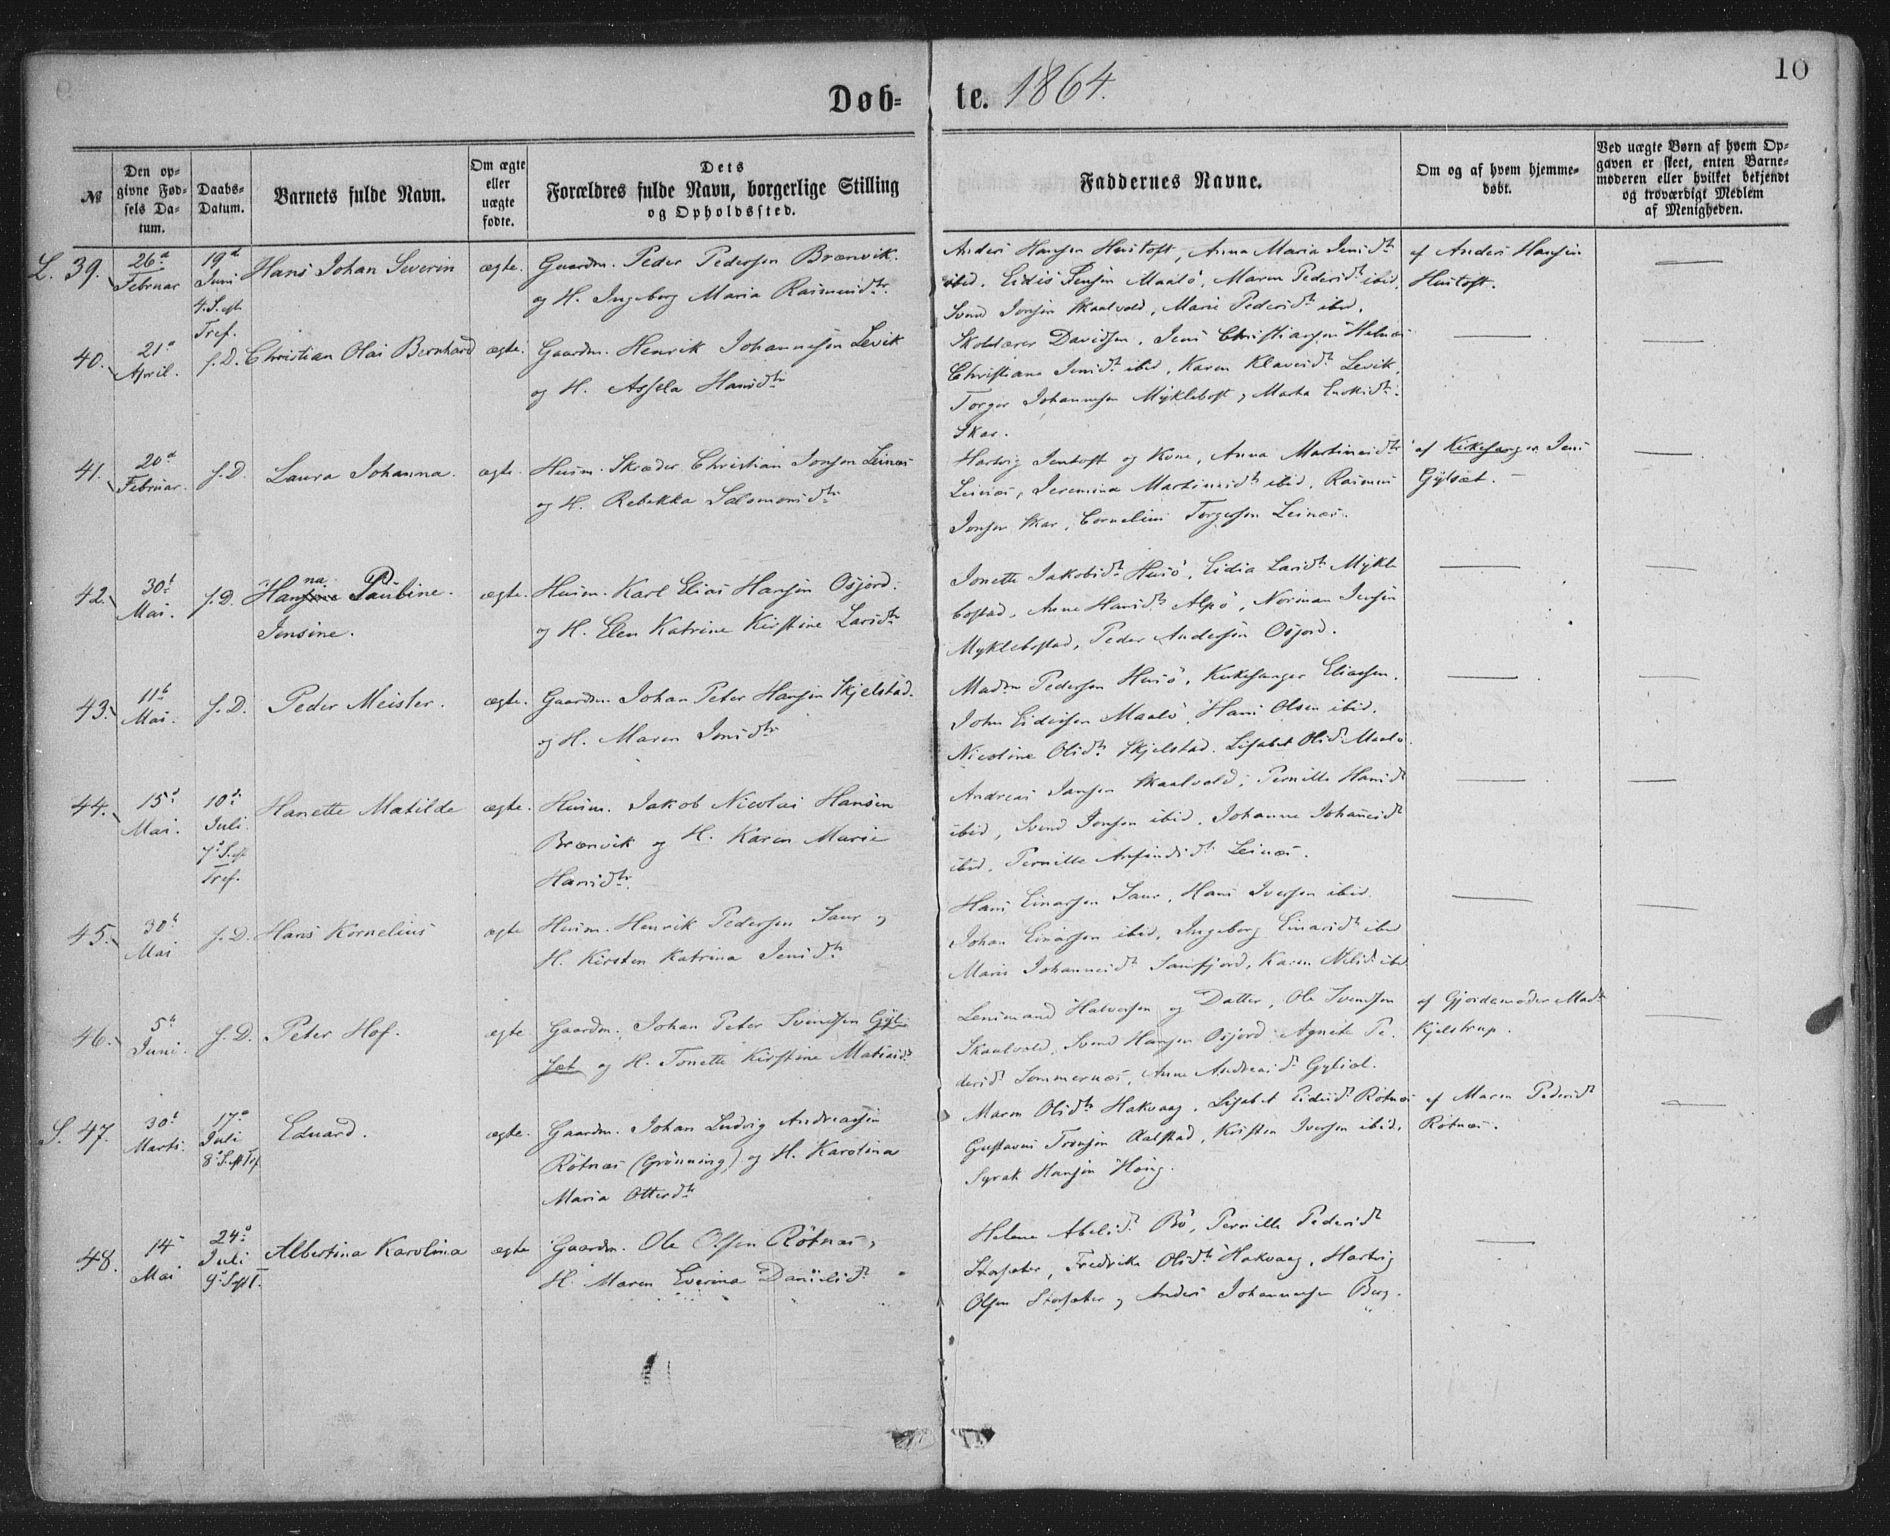 Døb=
te. 1864.
10
№
Den op-
givne Fød-
sels Da-
tum.
Daabs-
Datum.
Barnets fulde Navn.
Om ægte
eller
uægte
fødte.
Dets
Forældres fulde Navn, borgerlige Stilling
og Opholdssted.
Faddernes Navne.
Om og af hvem hjemme-
døbt.
Ved uægte Børn af hvem Op-
gaven er skeet, enten Barne-
moderen eller hvilket bekjendt
og troværdigt Medlem
af Menigheden.
L. 39.
26d
Februar
19d
Juni
4.S.eft
Tref.
Hans Johan Severin
ægte.
Gaardm. Peder Pedersen Brænvik.
og H. Ingeborg Maria Rasmusdtr.
Anders Hansen Hustoft, Anna Maria Jensdtr
ibid. Eidis Jensen Maalö, Maren Pedersdtr ibid,
Svend Jonsen Skaalvold, Marie Pedersdtr ibid.
af Anders Hansen
Hustoft.
40.
21d
April.
s.D.
Christian Olai Bernhard
ægte.
Gaardm. Henrik Johannesen Levik
og H. Assela Hansdtr
Skolelærer Davidsen, Jens Christiansen Helnes
Christiane Jensdtr ibid, Karen Klausdtr Levik,
Torger Johannesen Myklebost, Marta Enoksdtr
Skar.
41.
20d
Februar.
s.D.
Laura Johanna.
ægte.
Husm. Skræder Christian Jonsen Leines
og H. Rebekka Salomonsdtr
Hartvig Jentoft og Kone, Anna Martinusdtr
Leines, Jeremina Martinusdtr ibid, Rasmus
Jonsen Skar, Cornelius Torgersen Leines.
af Kirkesanger Jens
Gylset.
42.
30t
Mai.
s.D.
Hanna Pauline
Jensine.
ægte.
Husm. Karl Elias Hansen Osjord.
og H. Elen Katrine Kirstine Larsdtr
Jonette Jakobsdtr Husö, Lidia Larsdtr Mykle
bostad, Anne Hansdtr Alpö, Norman Jensen
Myklebostad, Peder Andersen Osjord.
43.
11t
Mai.
s.D.
Peder Meisler.
ægte.
Gaardm. Johan Peter Hansen Skjelstad.
og H. Maren Jonsdtr
Madm Pedersen Husö, Kirkesanger Eliassen.
John Eidissen Maalö, Hans Olsen ibid.
Nicoline Olsdtr Skjelstad. Lisabet Olsdtr Maalö.
44.
15d
Mai.
10d
Juli
7d S.eft
Tref.
Hanette Matilde
ægte.
Husm. Jakob Nicolai Hansen
Brænvik og H. Karen Marie
Hansdtr.
Andreas Jansen Skaalvold, Pernille Hansdtr
ibid, Svend Jonsen ibid. Johanne Johansdtr
ibid. Pernille Arfindsdtr Leines.
45.
30t
Mai
s.D.
Hans Kornelius
ægte
Husm. Henrik Pedersen Saur og
H. Kirsten Katrina Jensdtr
Hans Einarsen Saur, Hans Iversen ibid.
Johan Einarsen ibid, Ingeborg Einarsdtr ibid
Maris Johannesdtr Saurfjord, Karen Nilsdtr ibid.
46.
5t
Juni.
s.D.
Peter Hof.
ægte
Gaardm. Johan Peter Svendsen Gyl-
set og H. Tonette Kirstine Matiasdtr
Lensmand Halvorsen og Datter, Ole Svendsen
Skaalvold, Svend Hansen Osjord. Agnete Pe-
dersdtr Sommernes, Anne Andreasdtr Gylset.
af Gjordemoder Madm
Kjelstrup.
S. 47.
30t
Marts.
17d
Juli
8d S.eft Tref.
Eduard.
ægte.
Gaardm. Johan Ludvig Andreassen
Rötnes (Grönning) og H. Karolina
Maria Ottersdtr
Maren Olsdtr Hakvaag, Lisabet Eidisdtr Rötnes
Gustavus Tronsen Aalstad, Kristen Iversen ibid.
Syrak Hansen Höng.
af Maren Pedersdtr
Rötnes.
48.
14
Mai
24d
Juli
9d S.eft T.
Albertina Karolina
ægte
Gaardm. Ole Olsen Rötnes,
H. Maren Everina Danielsdtr
Helene Abelsdtr Bö, Pernille Pedersdtr
Storsæter, Fredrike Olsdtr Hakvaag, Hartvig
Olsen Storsæter og Anders Johannesen Berg.